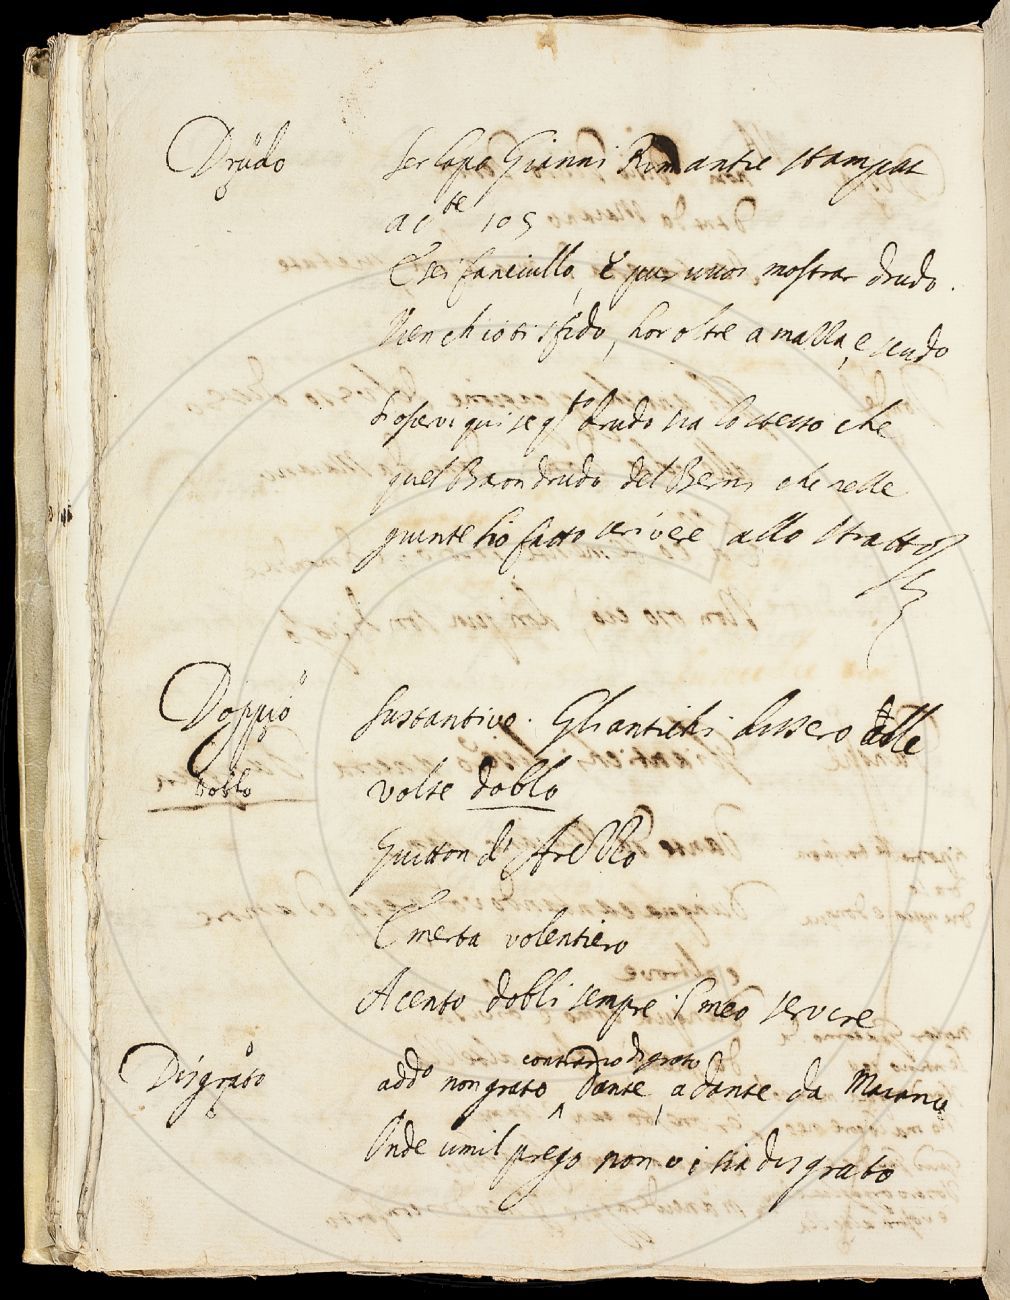 Drudo
Ser Lapo Gianni Rim antie stampat
ac te 105
E sei fanciullo, e pur vuoi mostrar drudo.
Vien ch'io ti sfido, hor oltre a malla, e scudo
si osservi qui se q.to drudo sia lo stesso che
quel Baron drudo del Berni che nelle
giunte ho fatto scrivere allo stratto
Doppio
Doblo
sustantivo. Gli antichi dissero dalle
volte doblo
Guitton d'Arezzo
E merta volentiero
A cento dobli sempre il meo servire
Disgrato
contrario di grato
add.o non grato ^ Dante, a Dante da Maiano
Onde umil prego non vi sia disgrato